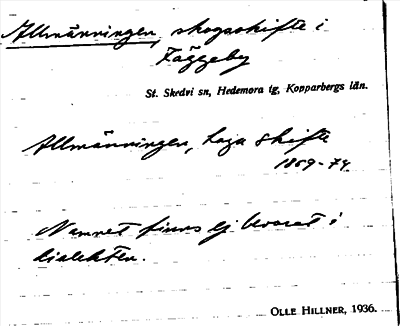 Allmänningen, skogsskifte i
Fäggeby
St. Skedvi sn, Hedemora tg, Kopparbergs län.
Allmänningen, laga skifte
1869-74
Namnet finns ej bevarat i
dialekten.
OLLE HILLNER, 1936.